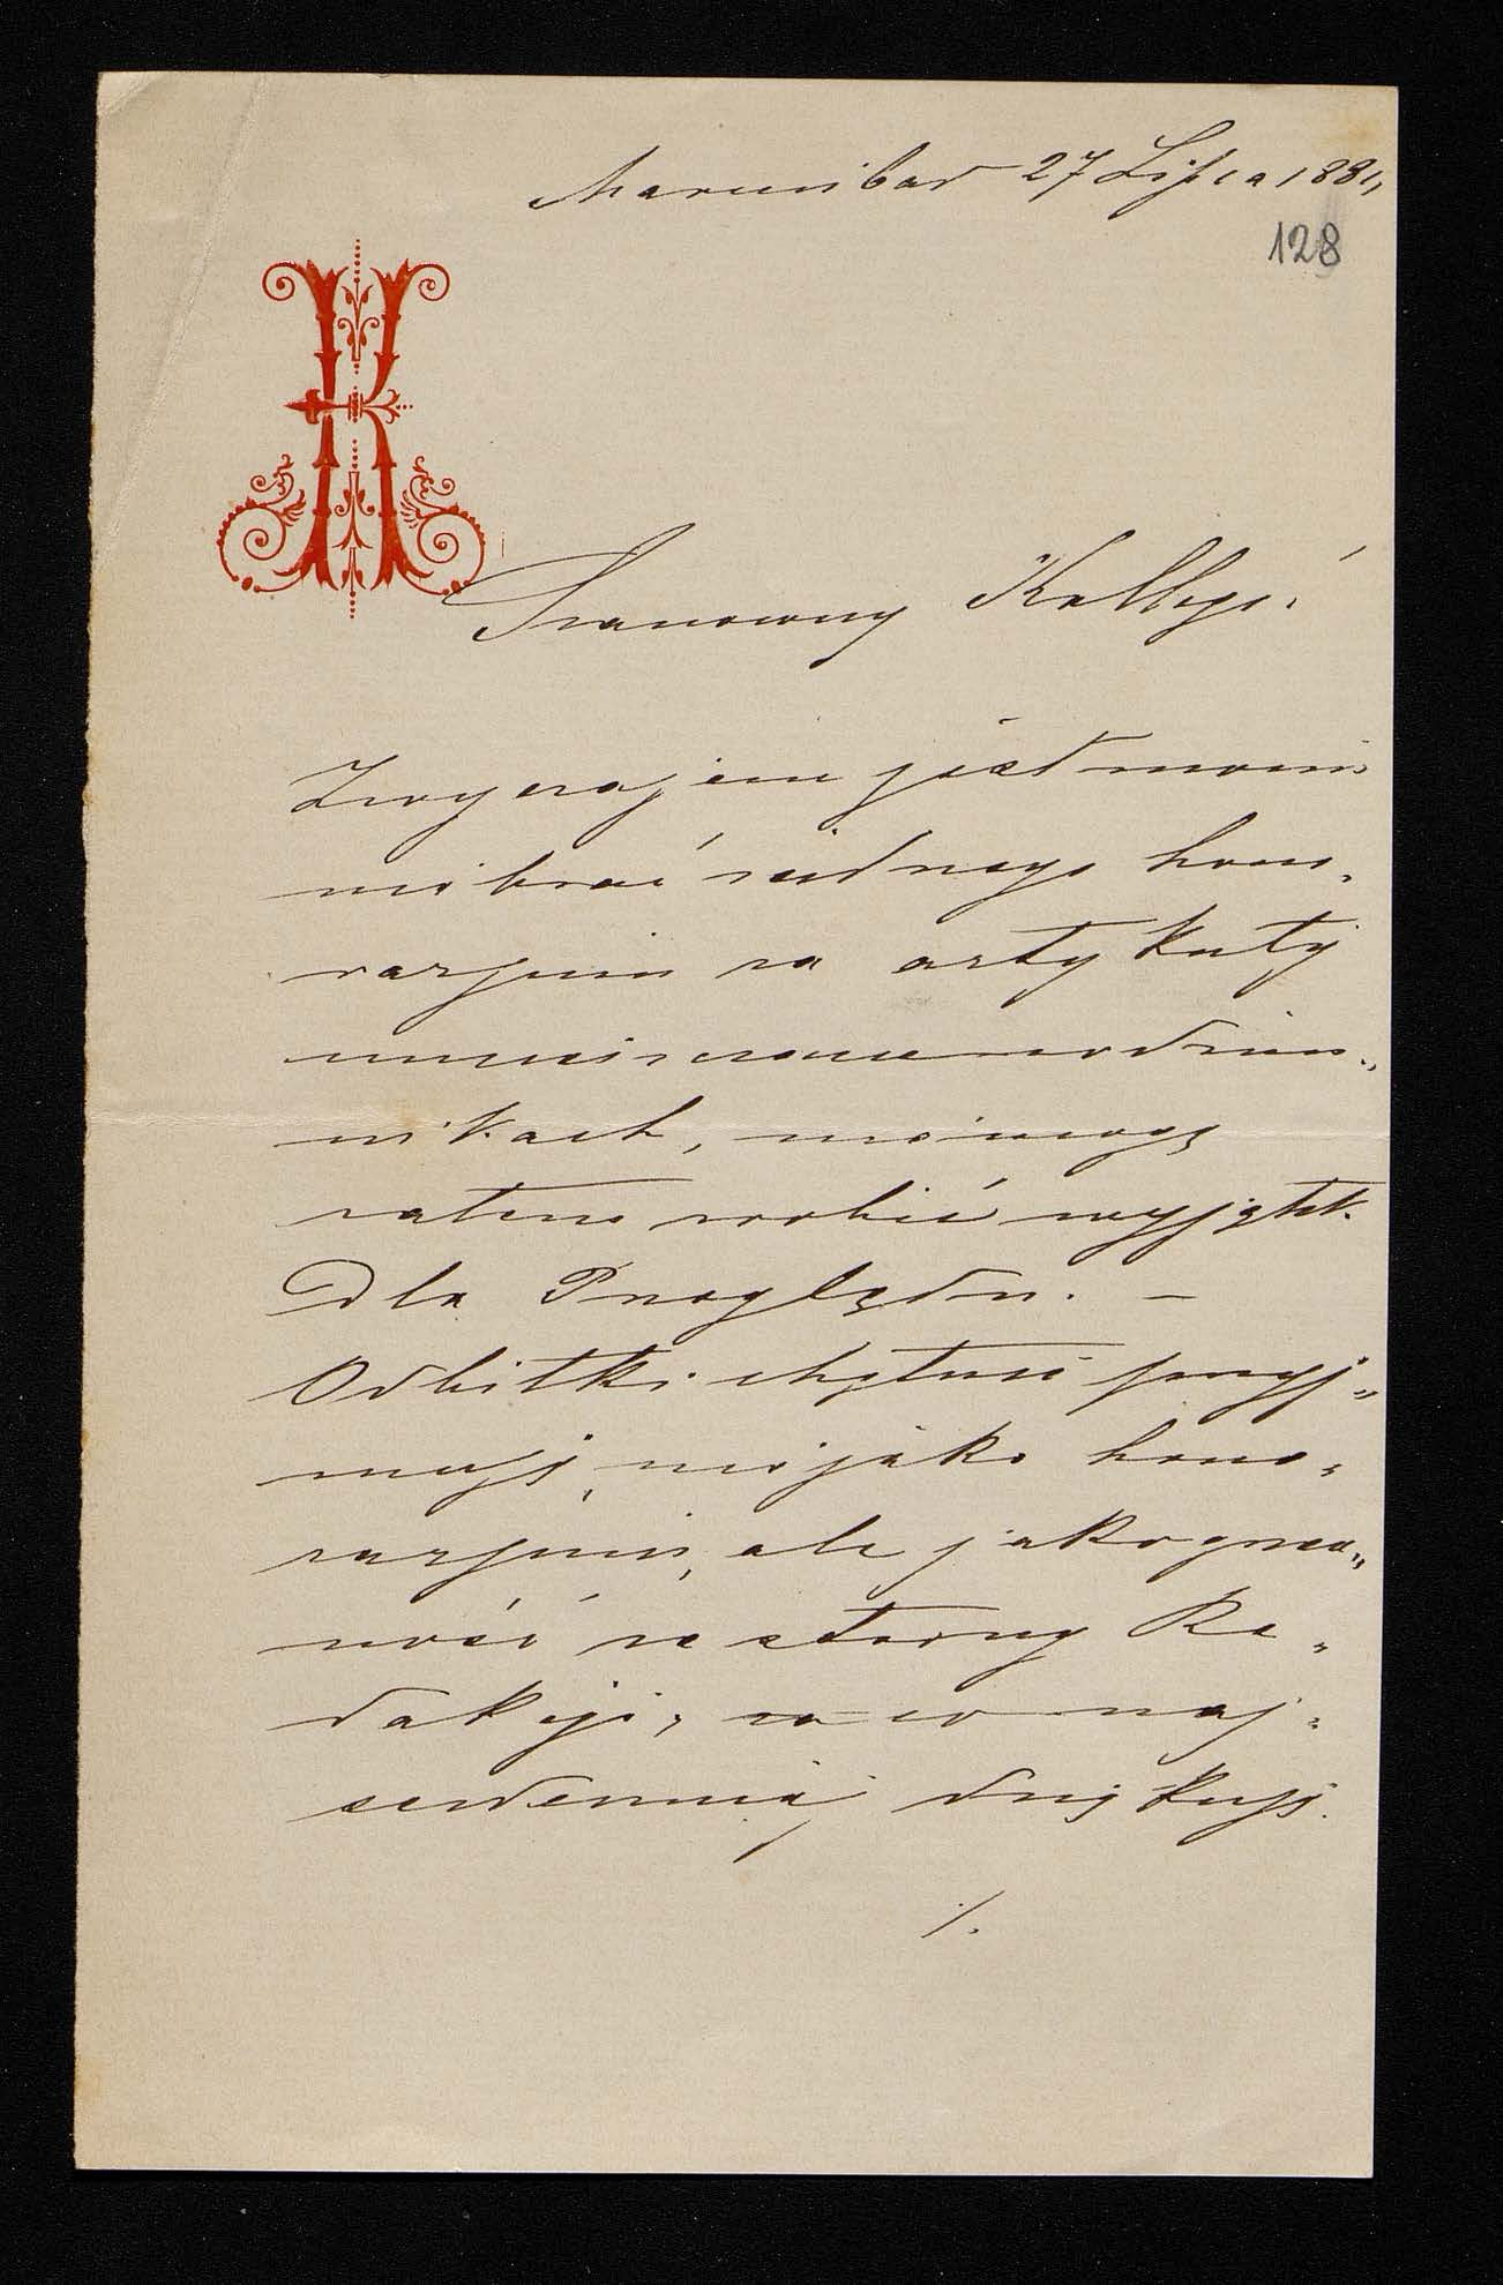 Marienbad 27 Lipca 1881,
128
Szanowny Kollego!
Zwyczajem jest moim
nie brać żadnego hono„
rarjum za artykuły
umieszczane w dzien„
nikach, nie mogę
zatem robić wyjątk.
Dla Przeglądu. —
Odbitki chętnie przyj„
muję, nie jako hono„
rarjum, ale jako grze„
czność ze strony Re„
dakcji, za co naj„
serdeczniéj dziękuję.
/.